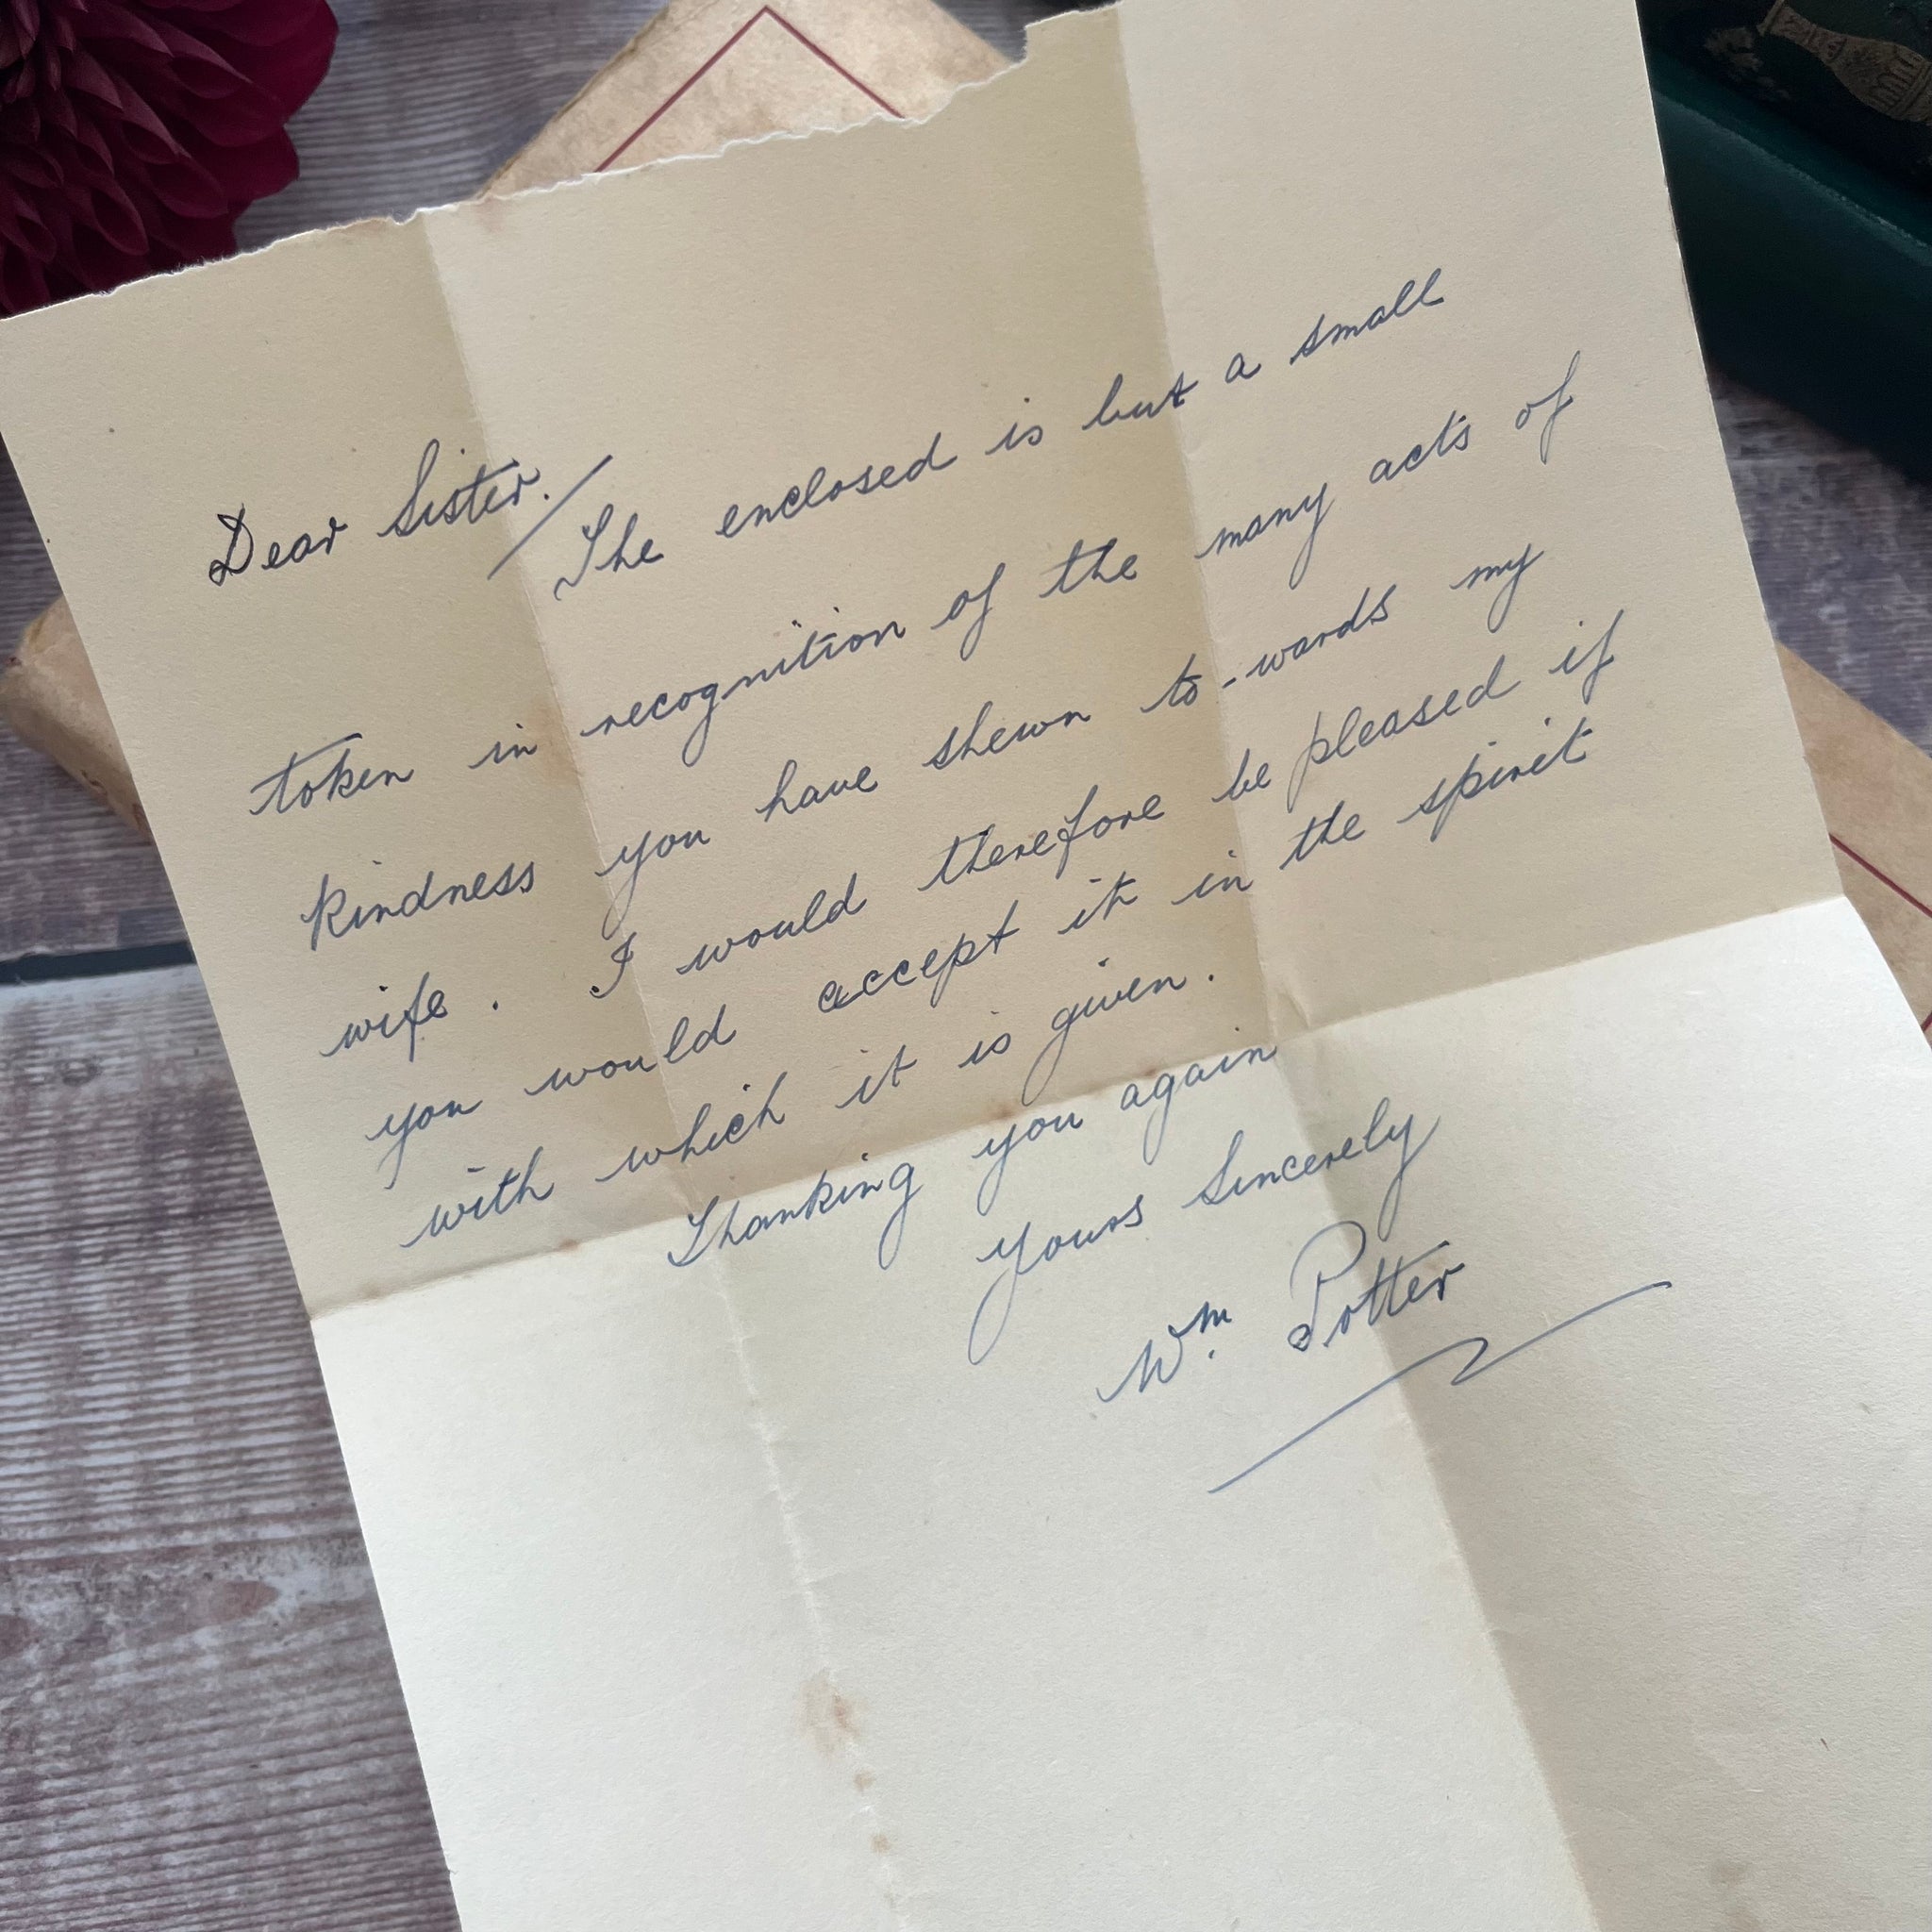 Dear Sister./
The enclosed is but a small
token in recognition of the many acts of
kindness you have shewn to-wards my
wife. I would therefore be pleased if
you would accept it in the spirit
with which it is given.
Thanking you again
yours Sincerely
Wm. Potter